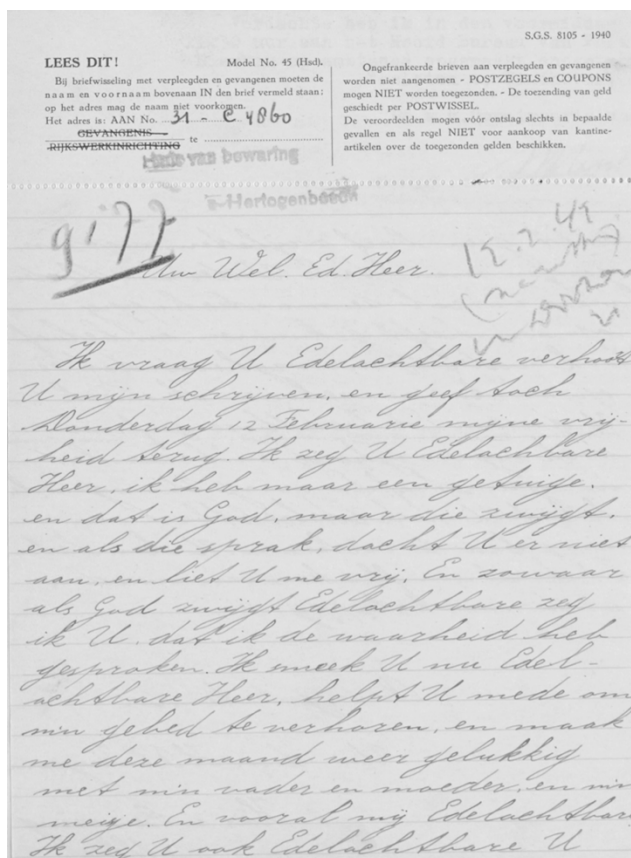 S.G.S. 8105 - 1940
LEES DIT! Model No. 45 (Hsd).
Bij briefwisseling met verpleegden en gevangenen moeten de
naam en voornaam bovenaan IN den brief vermeld staan:
op het adres mag de naam niet voorkomen.
Het adres is: AAN No. 31 - C 4860
GEVANGENIS
RIJKSWERKINRICHTING te
Huis van bewaring
's-Hertogenbosch
Ongefrankeerde brieven aan verpleegden en gevangenen
worden niet aangenomen - POSTZEGELS en COUPONS
mogen NIET worden toegezonden. - De toezending van geld
geschiedt per POSTWISSEL.
De veroordeelden mogen vóór ontslag slechts in bepaalde
gevallen en als regel NIET voor aankoop van kantine-
artikelen over de toegezonden gelden beschikken.
Uw Wel. Ed. Heer.
Ik vraag U Edelachtbare verhoort
U mijn schrijven, en geef toch
Donderdag 12 Februarie mijne vrij-
heid terug. Ik zeg U Edelachbare
Heer, ik heb maar een getuige.
en dat is God, maar die zwijgt.
en als die sprak, dacht U er niet
aan, en liet U me vrij. En zowaar
als God zwijgt Edelachtbare zeg
ik U, dat ik de waarheid heb
gesproken. Ik smeek U nu Edel-
achtbare Heer, helpt U mede om
mn gebed te verhoren, en maak
me deze maand weer gelukkig
met mn vader en moeder, en mn
meige. En vooral mij Edelachtbare
Ik zeg U ook Edelachtbare U